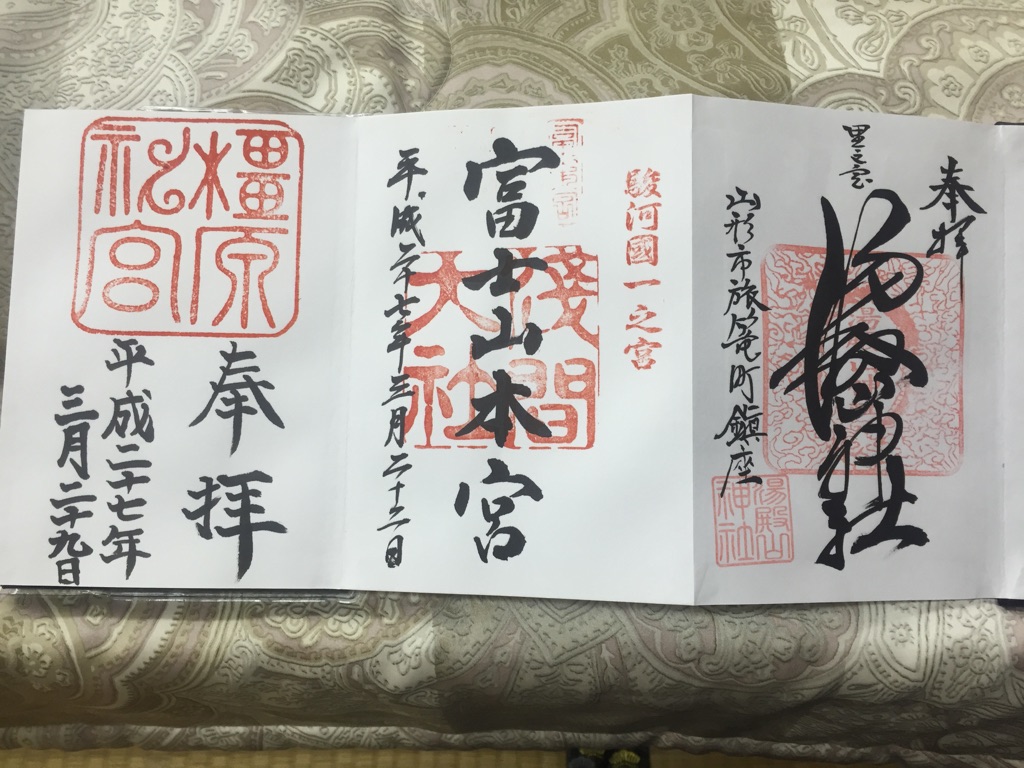 奉拝
里之宮
湯殿山神社
山形市旅篭町鎮座
湯殿山
神社
駿河國一之宮
富士山本宮
淺間
大社
平成二十七年三月二十
橿原
神宮
奉拝
平成二十七年
三月二十九日